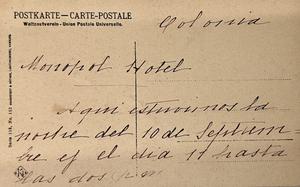 POSTKARTE — CARTE-POSTALE
Weltpostverein - Union Postale Universelle.
Colonia
Monopol Hotel
Aqui estuvimos la
noche del 10 de Septiem
bre y el dia 11 hasta
las dos p.m.